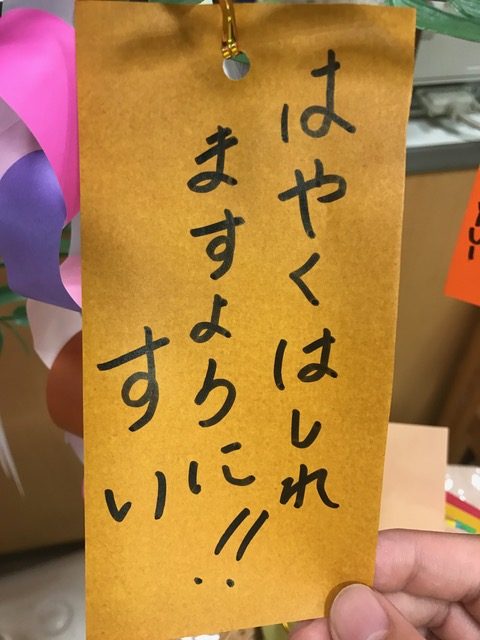 はやくはしれ
ますよりに!!
すい